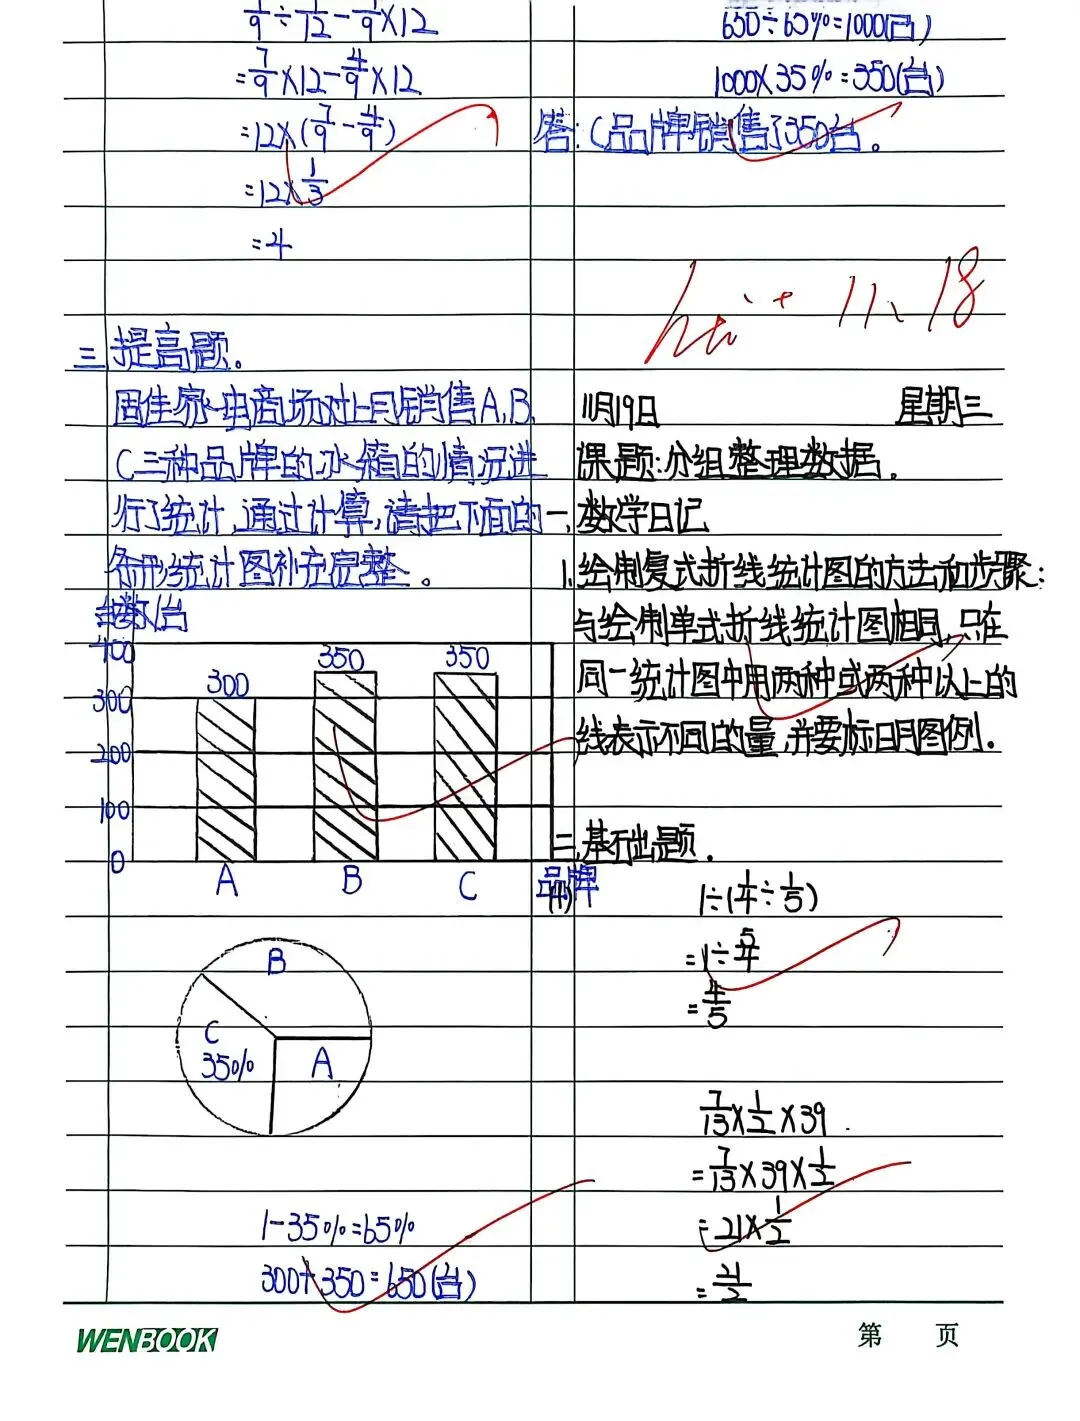 = 7/9 × 12 − 4/9 × 12
= 12 × (7/9 − 4/9)
= 12 × 1/3
= 4
三 提高题。
固佳家电商场对上月销售A、B、
C三种品牌的冰箱的情况进
行了统计,通过计算,请把下面的
条形统计图补充完整。
台数/台
400
300
200
100
0
300
350
350
A
B
C
品牌
B
C
35%
A
1−35%=65%
300+350=650(台)
650÷65%=1000(台)
1000×35%=350(台)
答:C品牌销售了350台。
11.18
11月19日 星期三
课题:分组整理数据。
一、数学日记
1.绘制复式折线统计图的方法和步骤:
与绘制单式折线统计图相同,只在
同一统计图中用两种或两种以上的
线表示不同的量,并要标明图例。
二、基础题。
(1)
1÷(1/4÷1/5)
=1÷5/4
=4/5
7/13×1/2×39
=7/13×39×1/2
=21×1/2
=21/2
WENBOOK
第 页